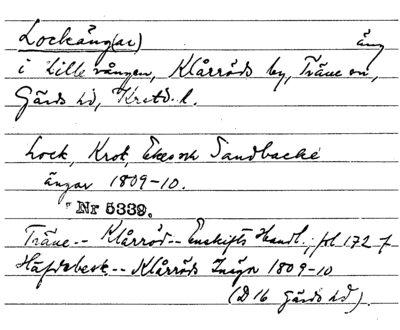 Lockäng(ar) äng
i Lille vången, Klårröds by, Träne sn,
Gärds hd, Krstd. l.
Lock, Krok, Ekes och Sandbacke
ängar 1809-10.
Nr 5339.
Träne -- Klårröd -- Enskifts Handl.; fol 172 f
Häfdebesk. -- Klårröds Inägor 1809-10
(D 16 Gärds hd).